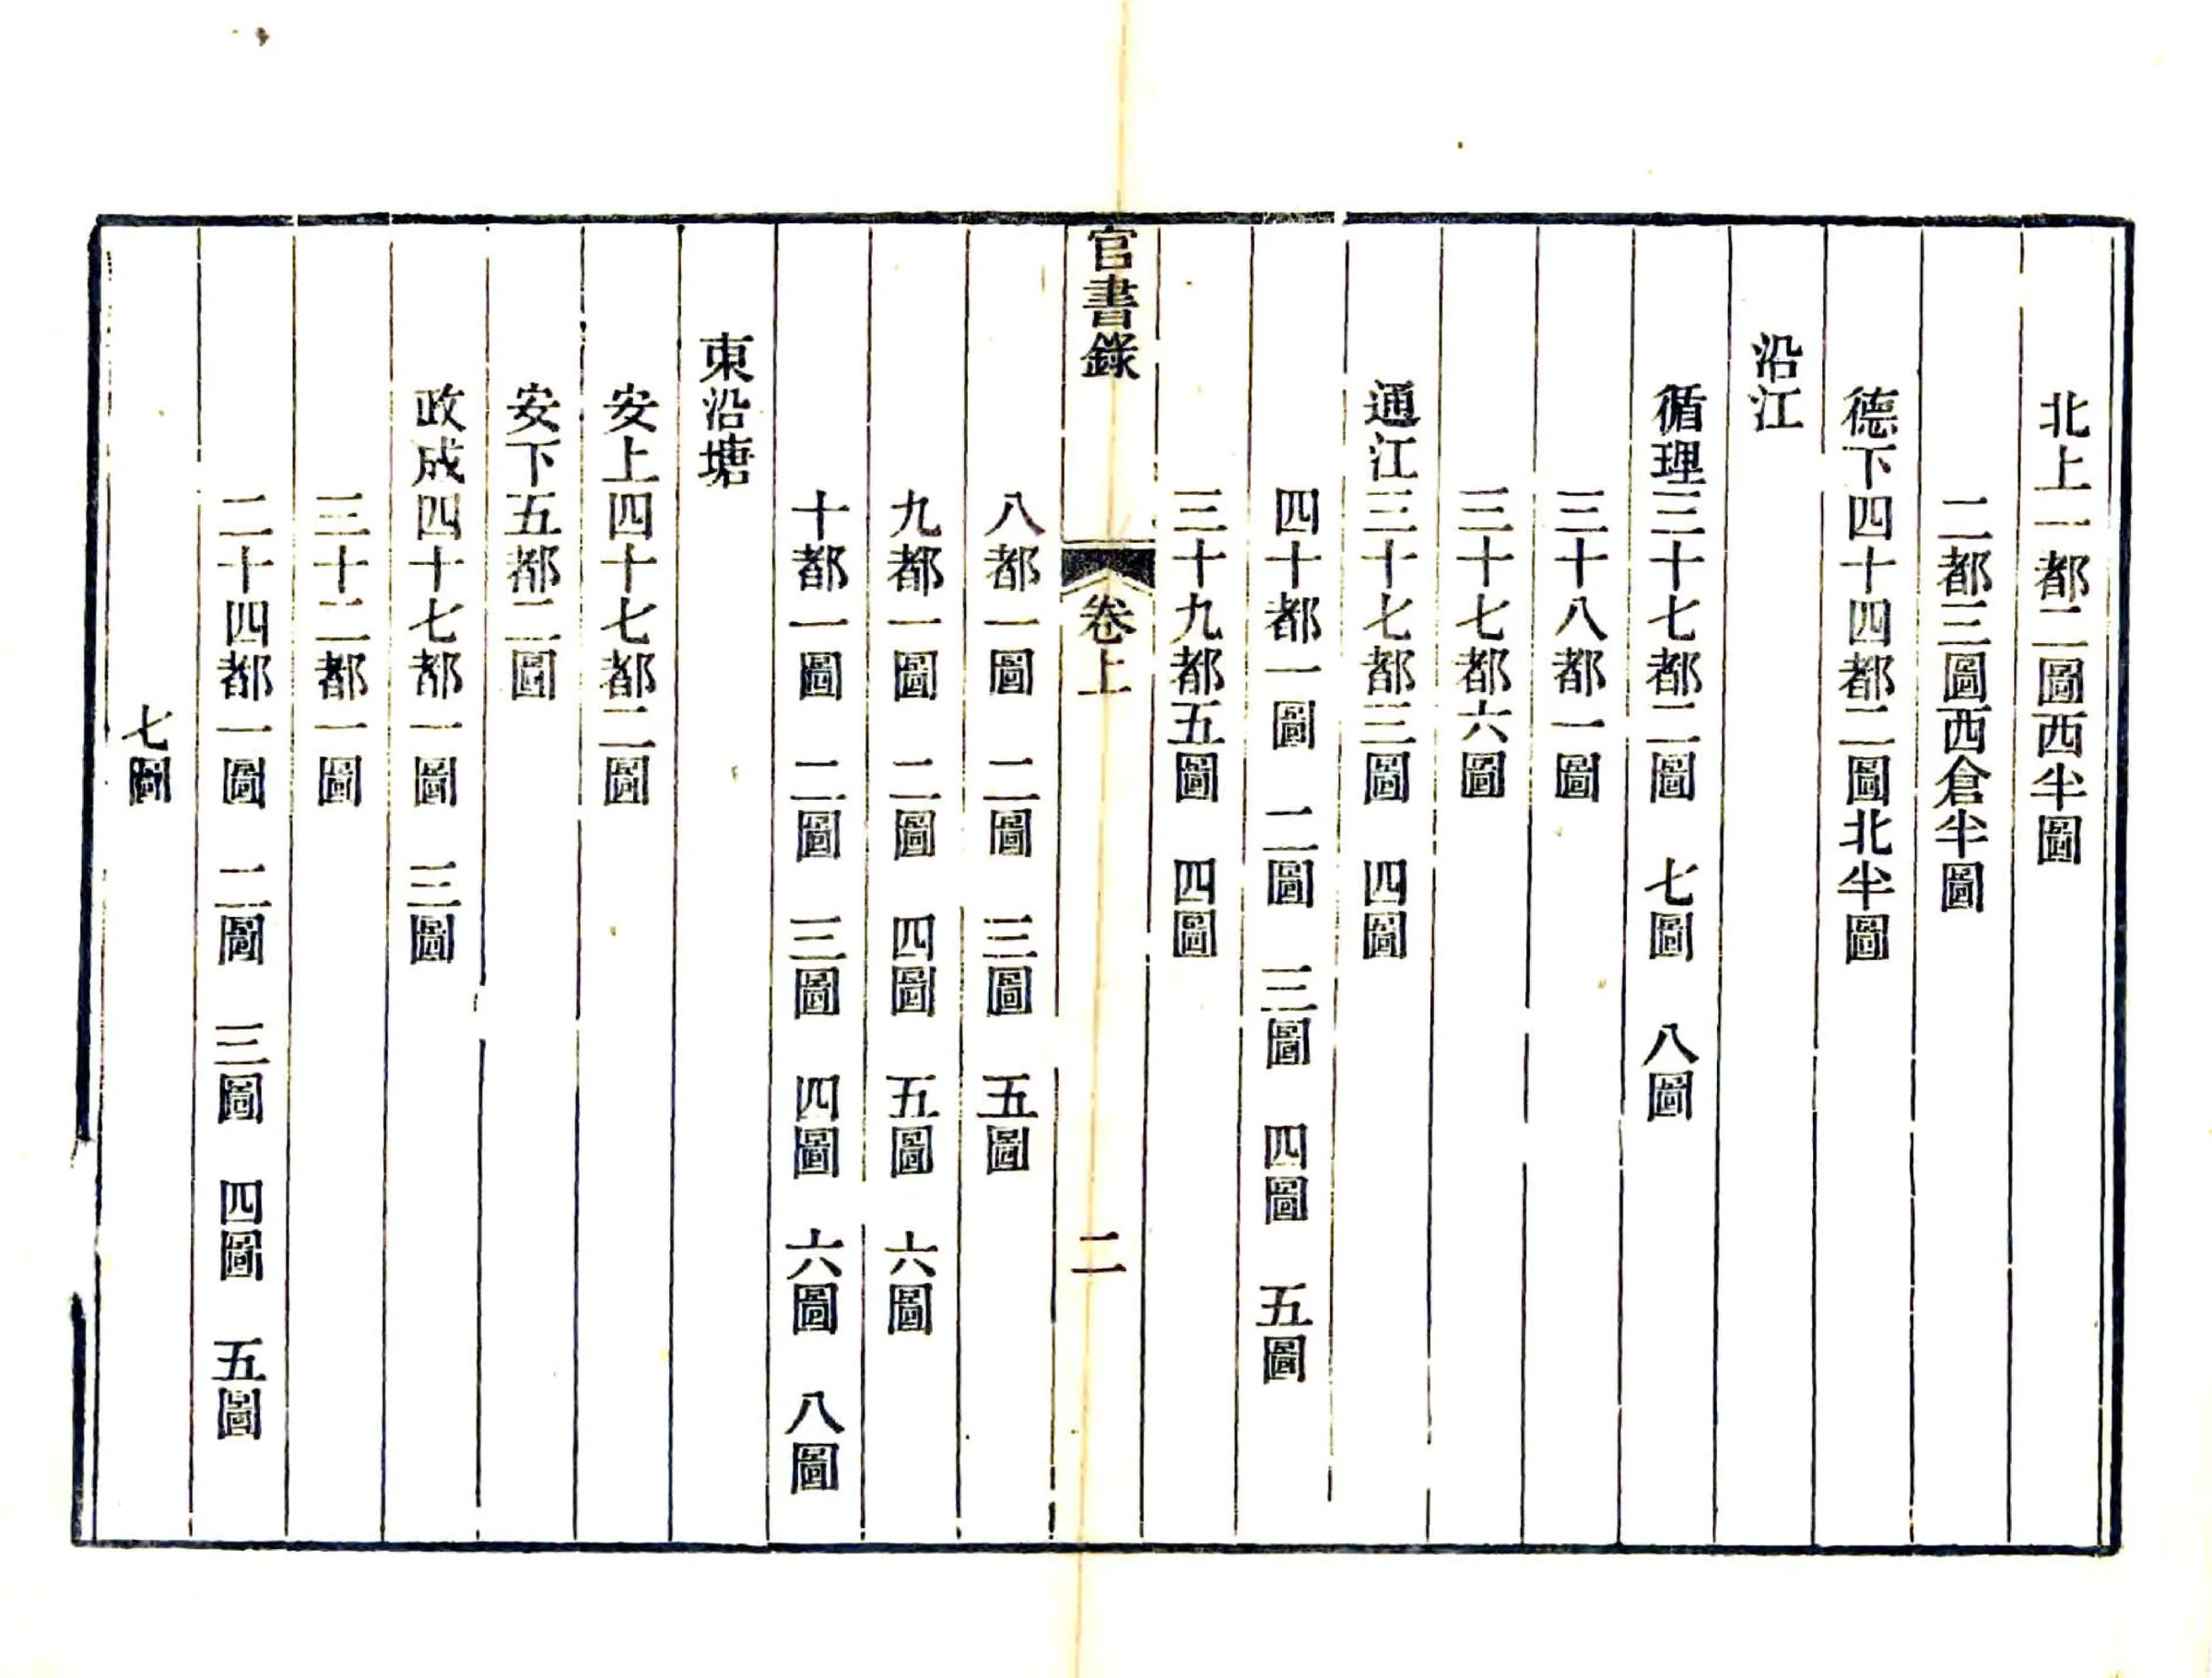 北上一都二圖西半圖
二都三圖西倉半圖
德下四十四都二圖北半圖
沿江
循理三十七都二圖　七圖　八圖
三十八都一圖
三十七都六圖
通江三十七都三圖　四圖
四十都一圖　二圖　三圖　四圖　五圖
三十九都五圖　四圖
官書錄　卷上　二
八都一圖　二圖　三圖　五圖
九都一圖　二圖　四圖　五圖　六圖
十都一圖　二圖　三圖　四圖　六圖　八圖
東沿塘
安上四十七都二圖
安下五都二圖
政成四十七都一圖　三圖
三十二都一圖
二十四都一圖　二圖　三圖　四圖　五圖
七圖